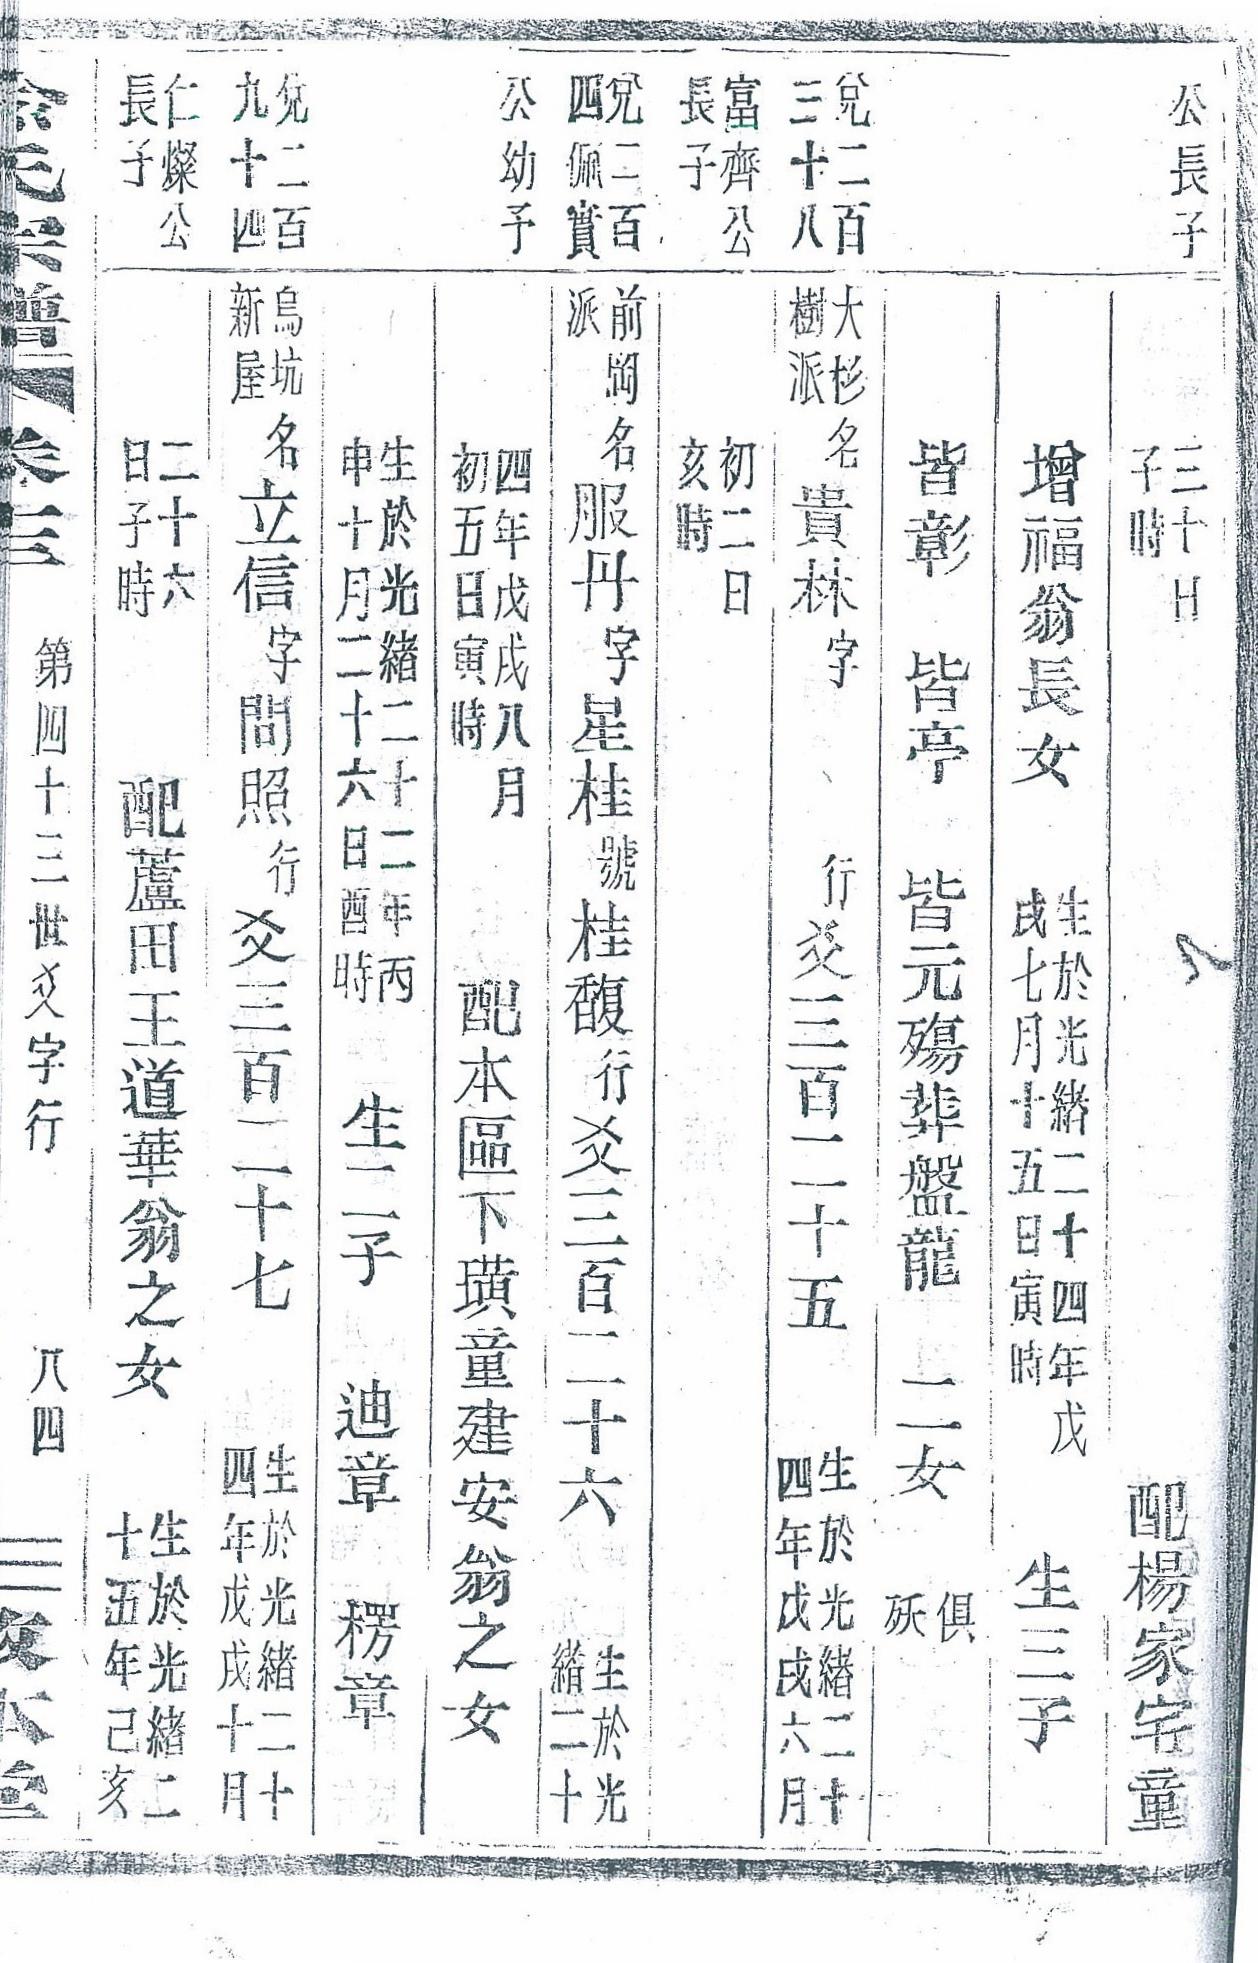 公長子
三十日
子時
配楊家宅童
增福翁長女
生於光緒二十四年戊
戌七月十五日寅時
生三子
皆彰 皆亭 皆元殤葬盤龍 二女
俱
殀
兌二百
三十八
富齊公
長子
大杉
樹派
名貴林字 行爻三百二十五
生於光緒二十
四年戊戌六月
初二日
亥時
兌二百
四佩實
公幼子
前岡
派
名服丹字星桂號桂馥行爻三百二十六
生於光
緒二十
四年戊戌八月
初五日寅時
配本區下璜童建安翁之女
生於光緒二十二年丙
申十月二十六日酉時
生二子 迪章 楞章
兌二百
九十四
仁燦公
長子
烏坑
新屋
名立信字問照行爻三百二十七
生於光緒二十
四年戊戌十月
二十六
日子時
配蘆田王道華翁之女
生於光緒二
十五年己亥
氏宗譜 卷三
第四十三世爻字行
八四
三友本堂